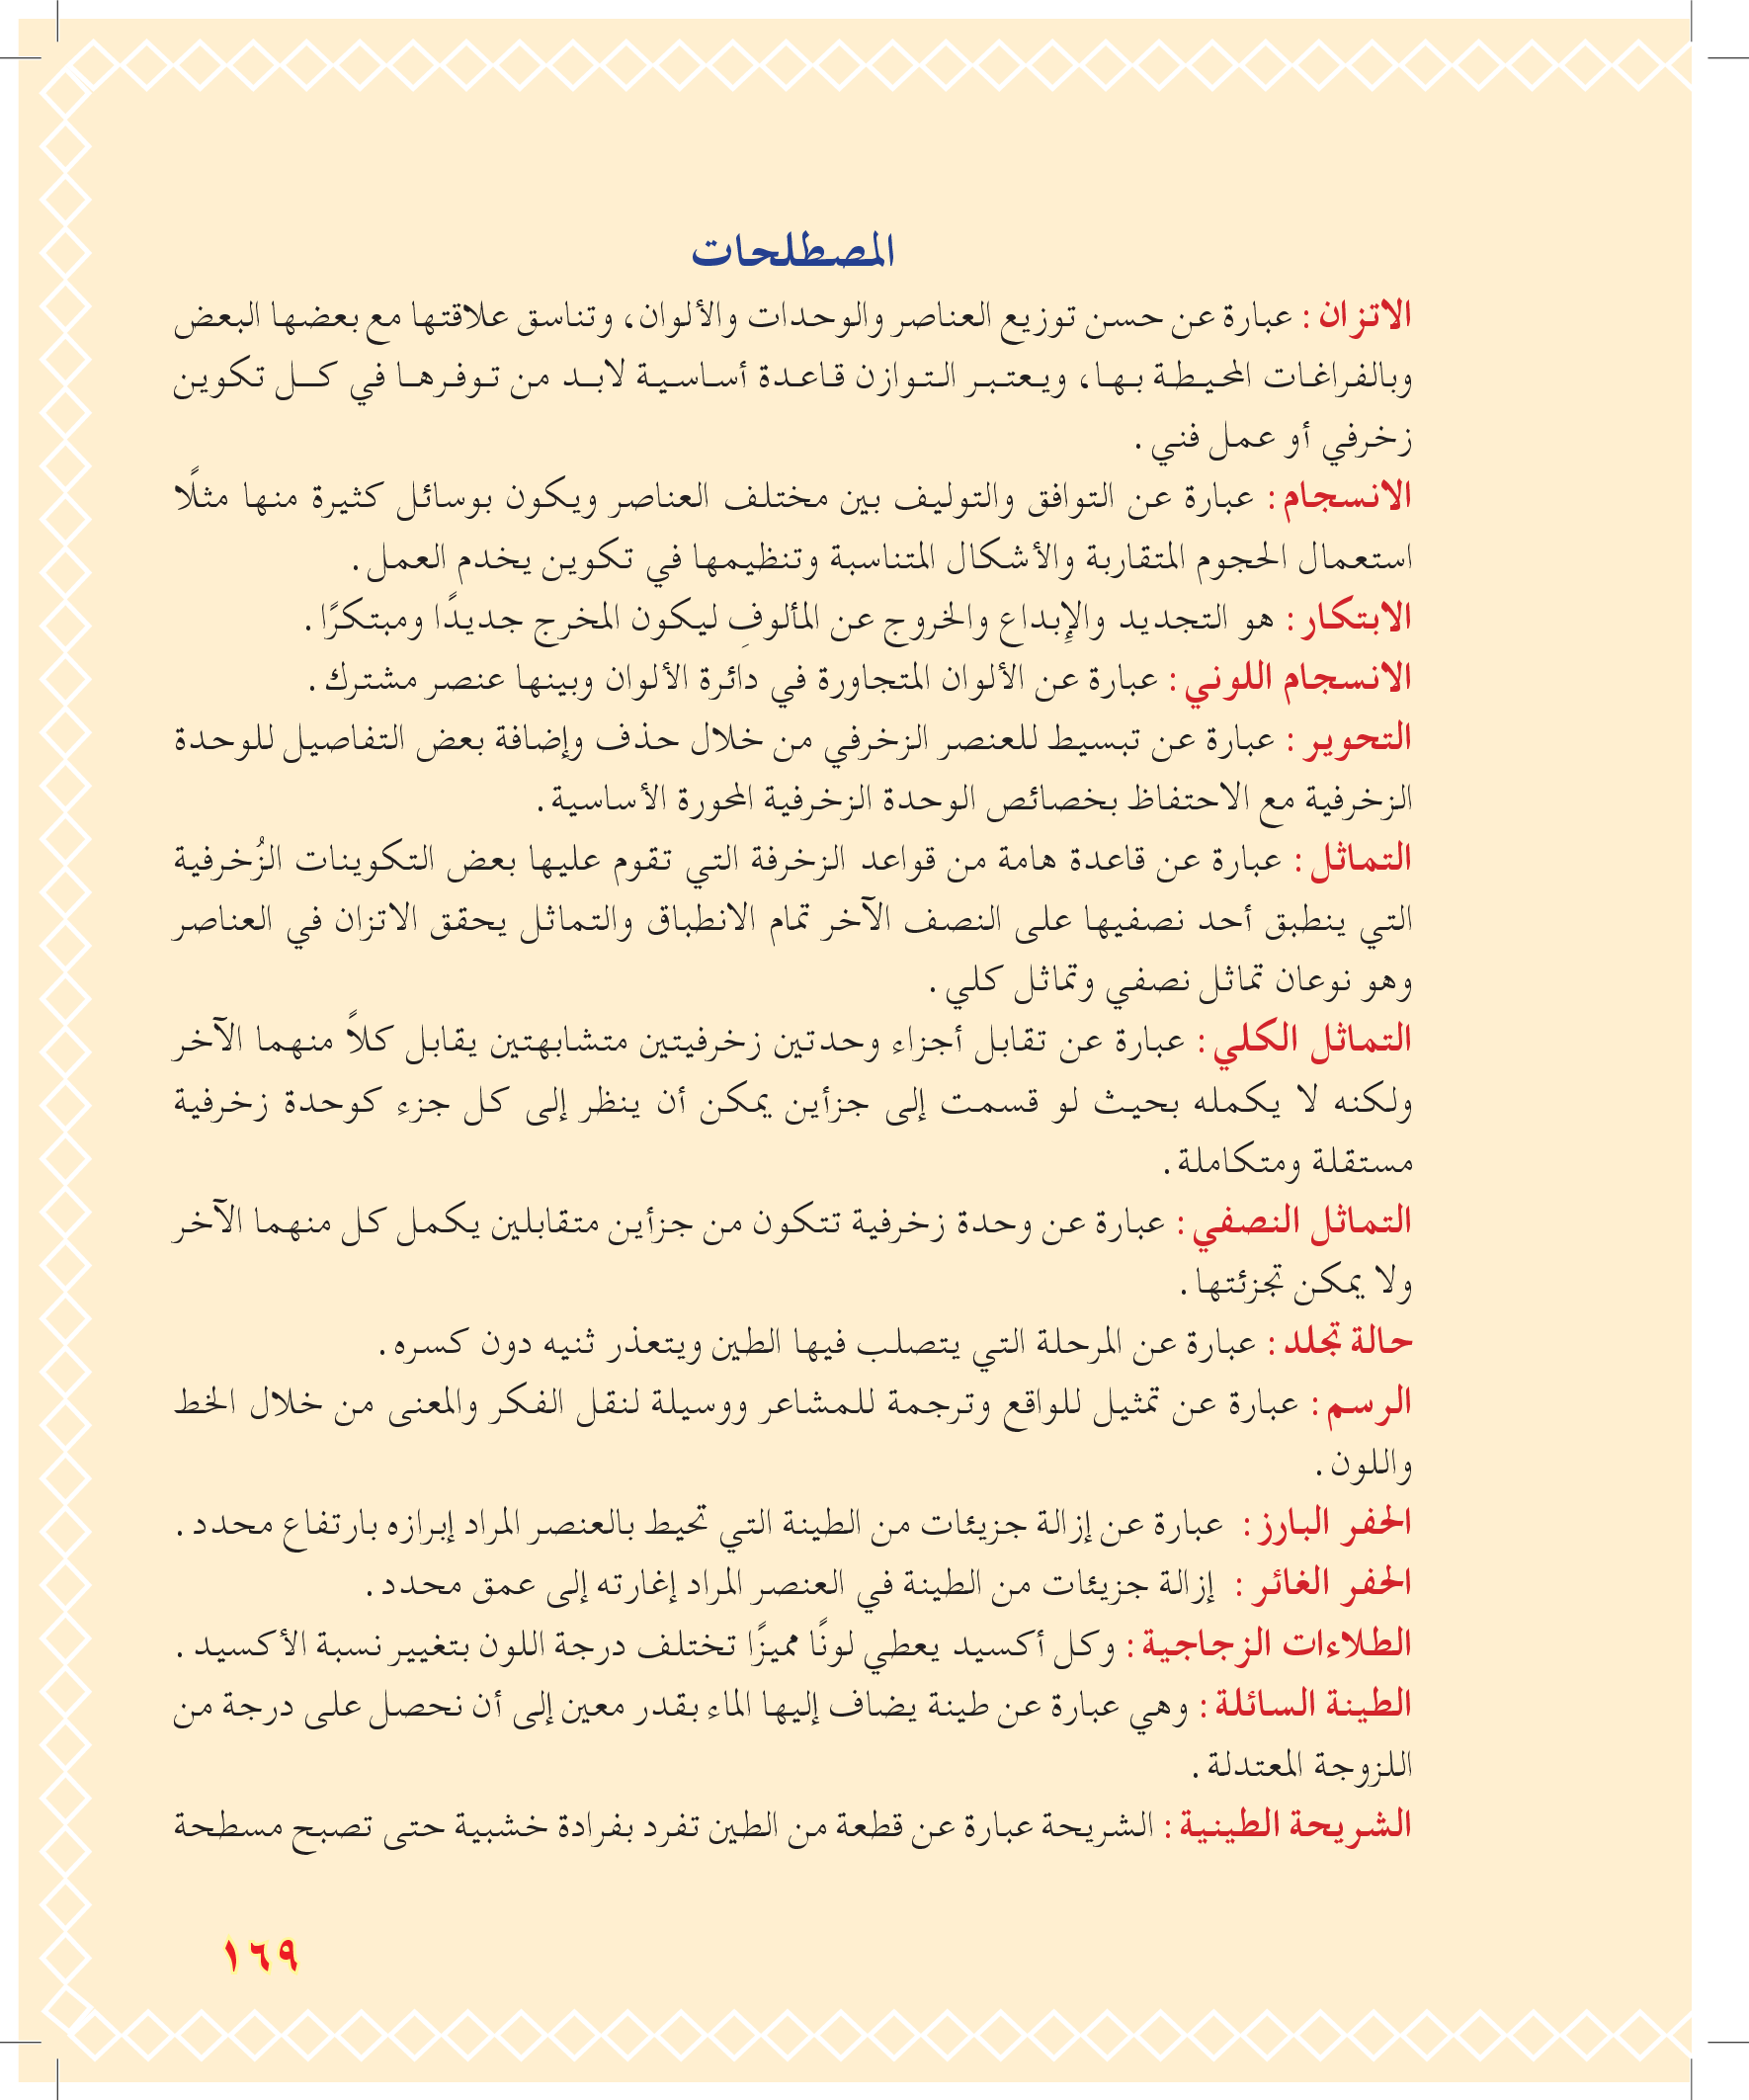 المصطلحات
الاتزان : عبارة عن حسن توزيع العناصر والوحدات والألوان، وتناسق علاقتها مع بعضها البعض
وبالفراغات المحيطة بها، ويعتبر التوازن قاعدة أساسية لابد من توفرها في كل تكوين
زخرفي أو عمل فني .
الانسجام : عبارة عن التوافق والتوليف بين مختلف العناصر ويكون بوسائل كثيرة منها مثلًا
استعمال الحجوم المتقاربة والأشكال المتناسبة وتنظيمها في تكوين يخدم العمل .
الابتكار : هو التجديد والإِبداع والخروج عن المألوفِ ليكون المخرج جديدًا ومبتكرًا .
الانسجام اللوني : عبارة عن الألوان المتجاورة في دائرة الألوان وبينها عنصر مشترك .
التحوير : عبارة عن تبسيط للعنصر الزخرفي من خلال حذف وإضافة بعض التفاصيل للوحدة
الزخرفية مع الاحتفاظ بخصائص الوحدة الزخرفية المحورة الأساسية .
التماثل : عبارة عن قاعدة هامة من قواعد الزخرفة التي تقوم عليها بعض التكوينات الزُخرفية
التي ينطبق أحد نصفيها على النصف الآخر تمام الانطباق والتماثل يحقق الاتزان في العناصر
وهو نوعان تماثل نصفي وتماثل كلي .
التماثل الكلي : عبارة عن تقابل أجزاء وحدتين زخرفيتين متشابهتين يقابل كلاً منهما الآخر
ولكنه لا يكمله بحيث لو قسمت إلى جزأين يمكن أن ينظر إلى كل جزء كوحدة زخرفية
مستقلة ومتكاملة .
التماثل النصفي : عبارة عن وحدة زخرفية تتكون من جزأين متقابلين يكمل كل منهما الآخر
ولا يمكن تجزئتها .
حالة تجلد : عبارة عن المرحلة التي يتصلب فيها الطين ويتعذر ثنيه دون كسره .
الرسم : عبارة عن تمثيل للواقع وترجمة للمشاعر ووسيلة لنقل الفكر والمعنى من خلال الخط
واللون .
الحفر البارز : عبارة عن إزالة جزيئات من الطينة التي تحيط بالعنصر المراد إبرازه بارتفاع محدد .
الحفر الغائر : إزالة جزيئات من الطينة في العنصر المراد إغارته إلى عمق محدد .
الطلاءات الزجاجية : وكل أكسيد يعطي لونًا مميزًا تختلف درجة اللون بتغيير نسبة الأكسيد .
الطينة السائلة : وهي عبارة عن طينة يضاف إليها الماء بقدر معين إلى أن نحصل على درجة من
اللزوجة المعتدلة .
الشريحة الطينية : الشريحة عبارة عن قطعة من الطين تفرد بفرادة خشبية حتى تصبح مسطحة
١٦٩